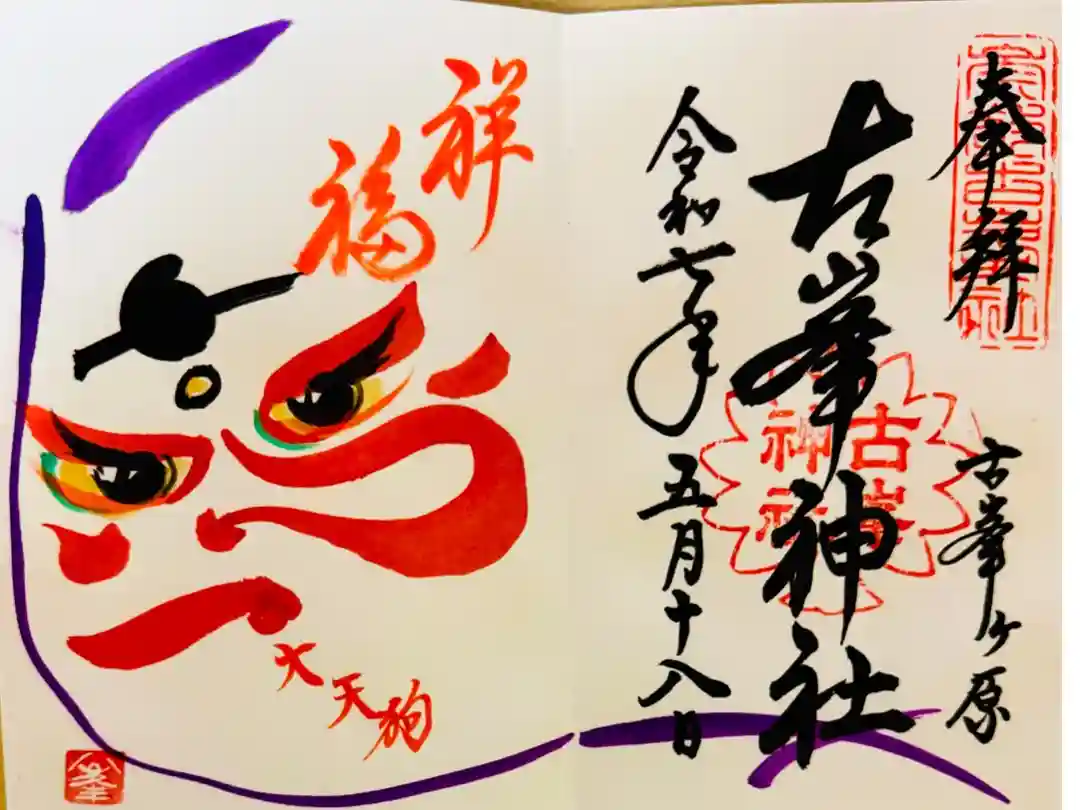 奉拝
古峯ヶ原
古峯神社
古峯
神社
令和七年五月十八日
祥福
大天狗
峯